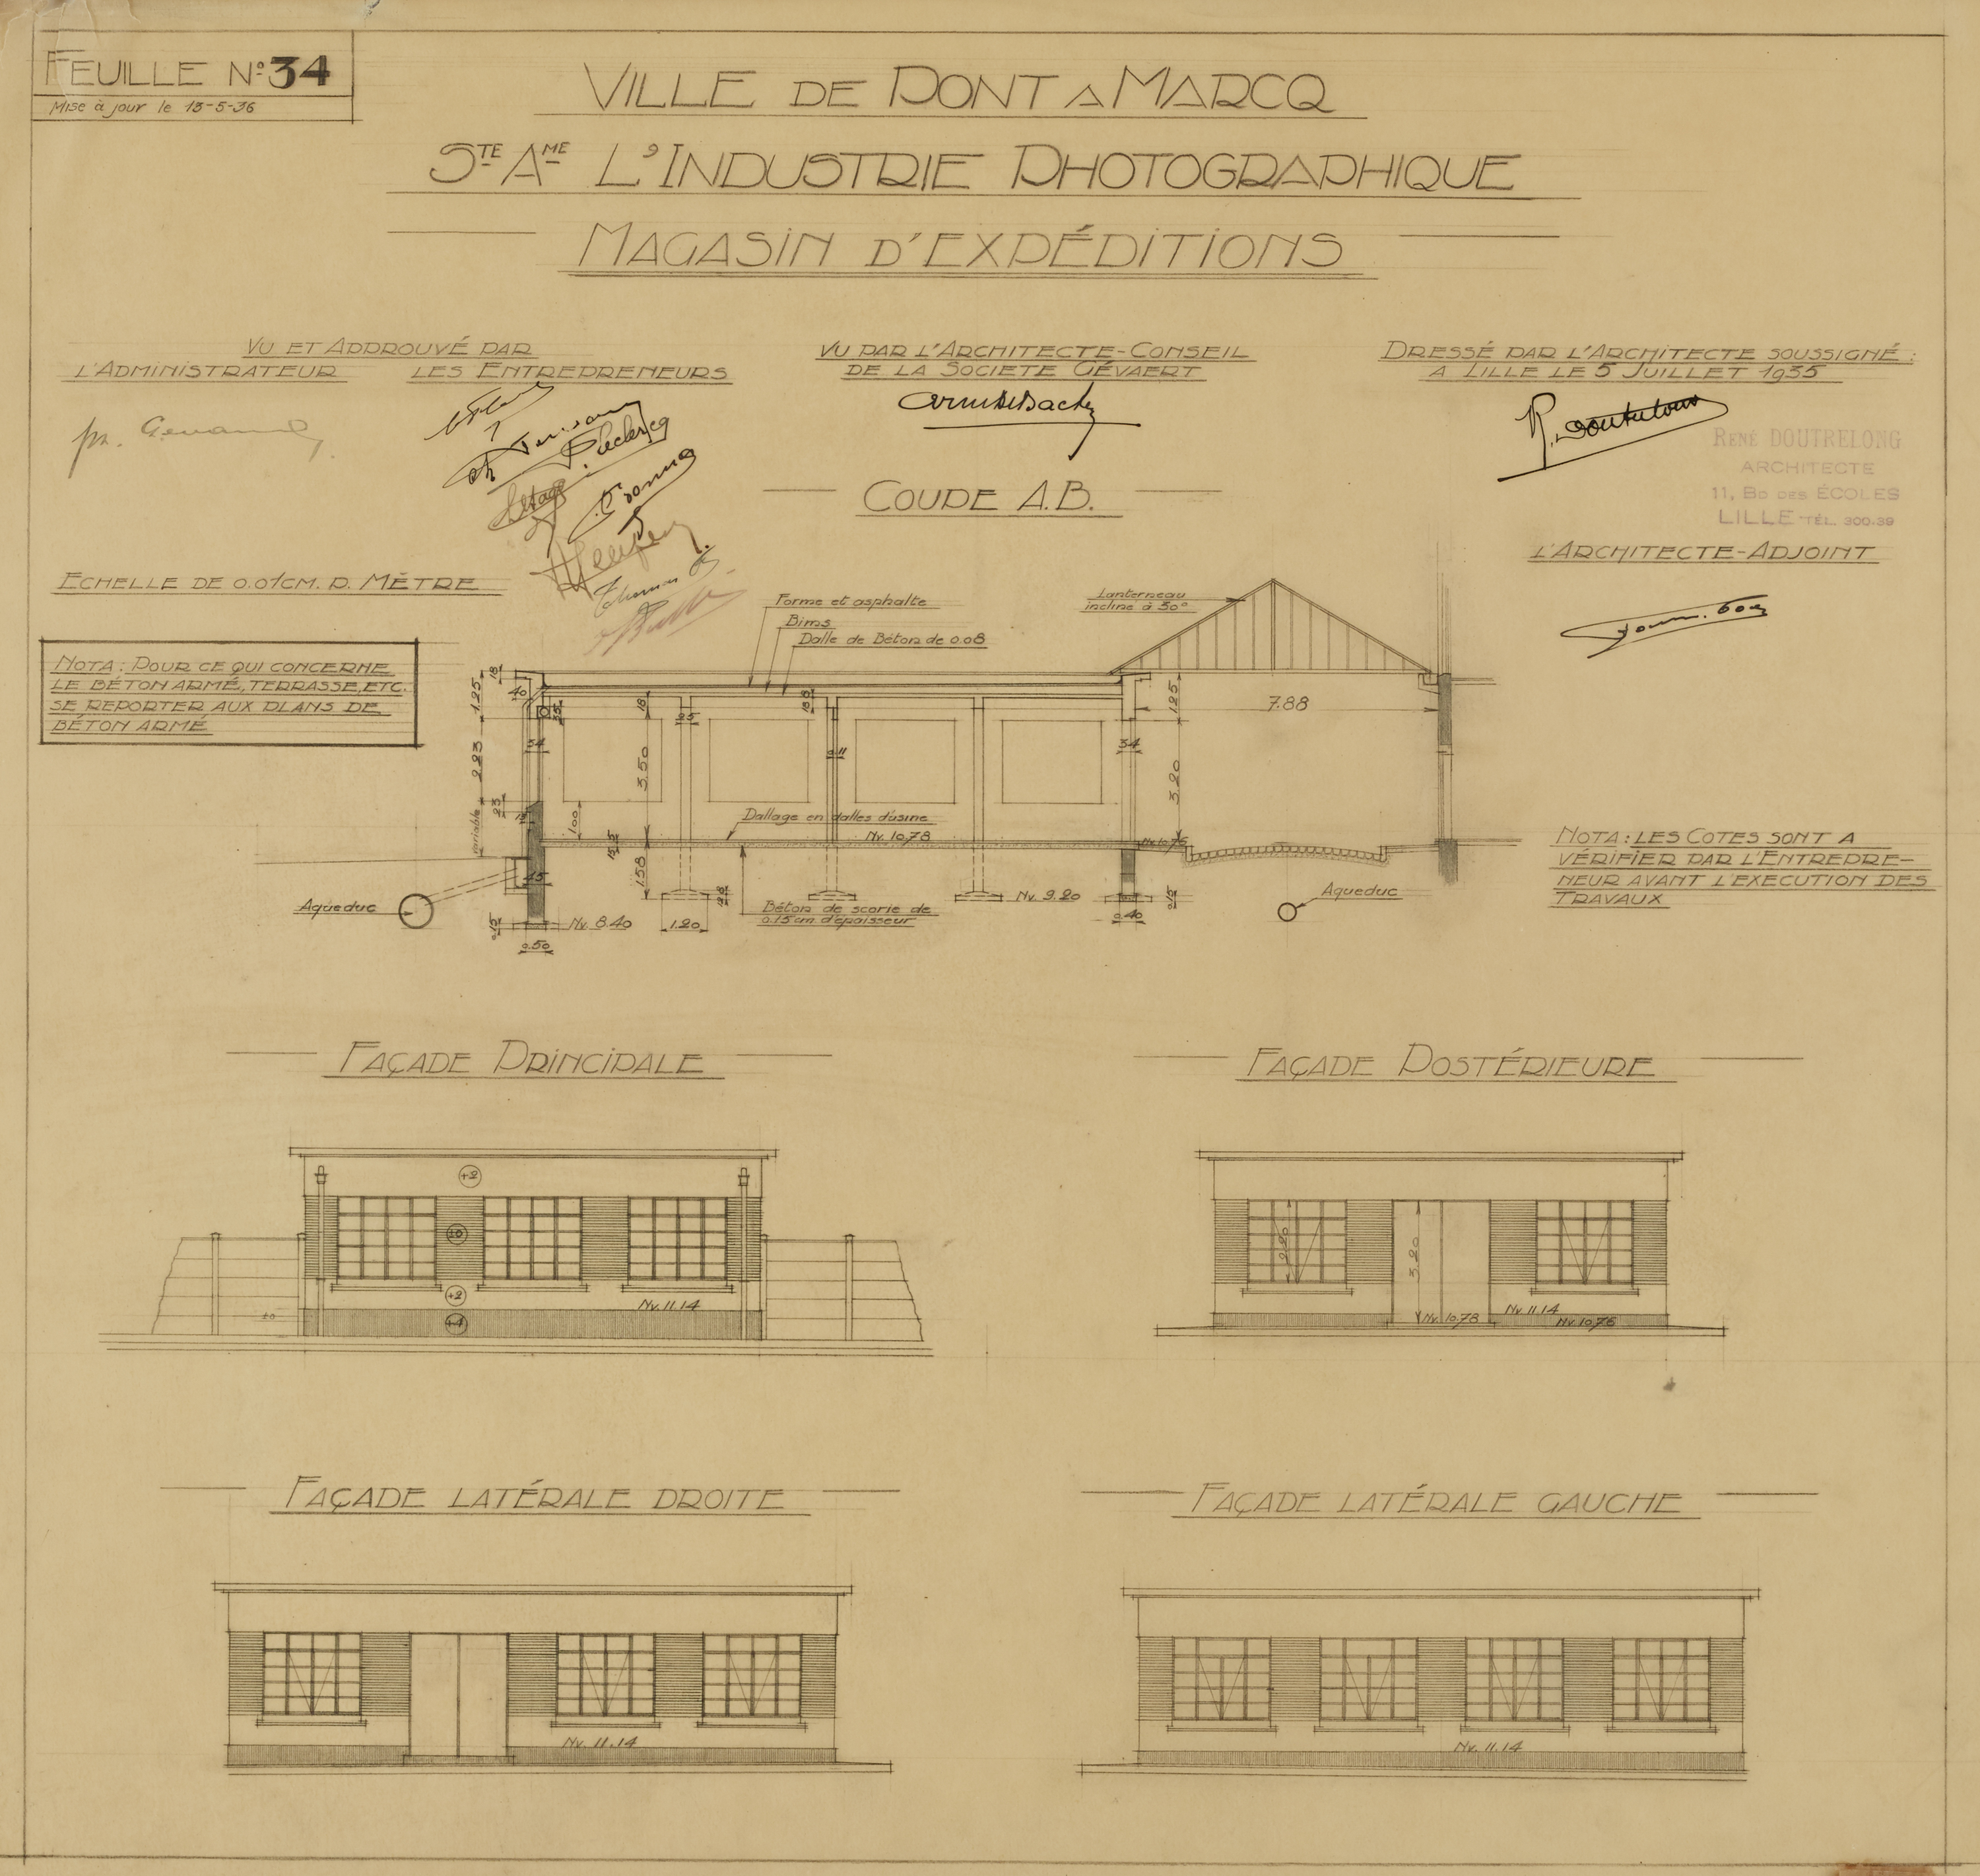 FEUILLE Nº 34
Mise à jour le 13-5-36
VILLE DE PONT A MARCQ
STE AME L'INDUSTRIE PHOTOGRAPHIQUE
MAGASIN D'EXPÉDITIONS
VU ET APPROUVÉ PAR
L'ADMINISTRATEUR
LES ENTREPRENEURS
VU PAR L'ARCHITECTE-CONSEIL
DE LA SOCIETE GÉVAERT
DRESSÉ PAR L'ARCHITECTE SOUSSIGNÉ :
A LILLE LE 5 JUILLET 1935
Leclercq
RENÉ DOUTRELONG
ARCHITECTE
11, BD DES ÉCOLES
LILLE TÉL. 300.39
L'ARCHITECTE-ADJOINT
COUPE A.B.
ECHELLE DE 0.01CM. P. MÈTRE
NOTA : POUR CE QUI CONCERNE
LE BÉTON ARMÉ, TERRASSE, ETC.
SE REPORTER AUX PLANS DE
BÉTON ARMÉ
Forme et asphalte
Bims
Dalle de Béton de 0.08
Lanterneau
incliné à 30°
18
1.25
40
35
18
25
18
1.25
7.88
34
0.11
34
2.23
3.50
3.20
variable
23
1.00
Dallage en dalles d'usine
Nv. 10.78
Nv. 10.76
15
1.58
45
Aqueduc
Nv. 8.40
0.15
0.50
1.20
Béton de scorie de
0.15cm d'épaisseur
Nv. 9.20
0.40
0.15
Aqueduc
NOTA : LES COTES SONT A
VÉRIFIER PAR L'ENTREPRE-
NEUR AVANT L'EXECUTION DES
TRAVAUX
FAÇADE PRINCIPALE
+2
±0
+2
+4
±0
Nv. 11.14
FAÇADE POSTÉRIEURE
2.20
3.20
Nv. 10.78
Nv. 11.14
Nv. 10.76
FAÇADE LATÉRALE DROITE
Nv. 11.14
FAÇADE LATÉRALE GAUCHE
Nv. 11.14